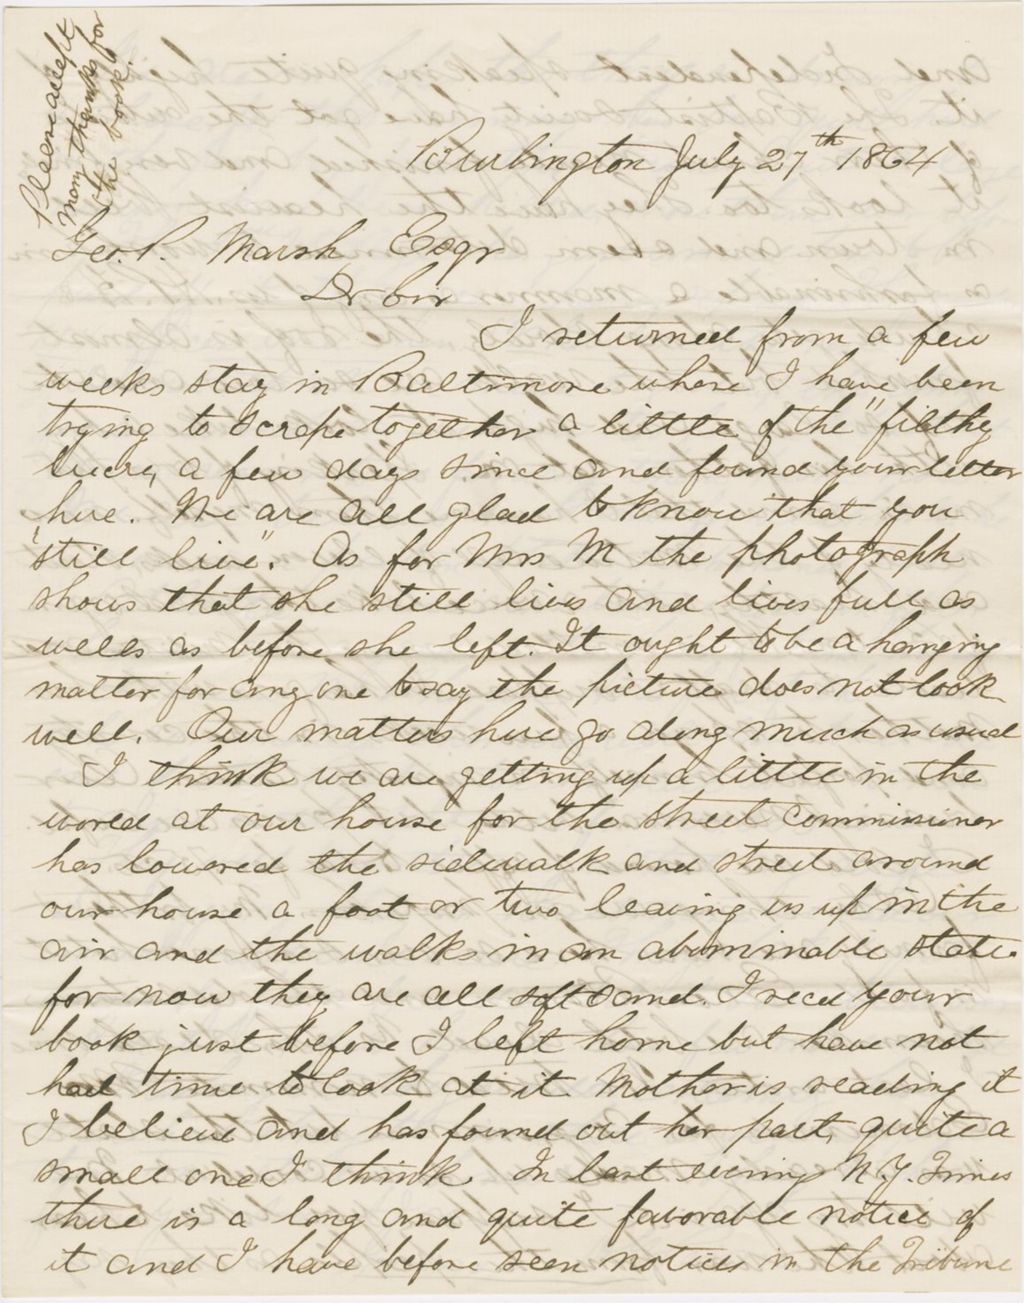 Please accept
mom thanks for
the book.
Burlington July 27th 1864
Geo. P. Marsh Esqr
Dr Sir
I returned from a few
weeks stay in Baltimore where I have been
trying to scrape together a little of the "filthy
lucre, a few days since and found your letter
here. We are all glad to know that you
"still live". As for Mrs M the photograph
shows that she still lives and lives full as
wells as before she left. It ought to be a hanging
matter for any one to say the picture does not look
well. Our matters here go along much as usual
I think we are getting up a little in the
world at our house for the street commissioner
has lowered the sidewalk and street around
our house a foot or two leaving us up in the
air and the walks in an abominable state
for now they are all soft sand. I recd your
book just before I left home but have not
had time to look at it. Mother is reading it
I believe and has found out her part, quite a
small one I think. In last evening N.Y. Times
there is a long and quite favorable notice of
it and I have before seen notices in the Tribune